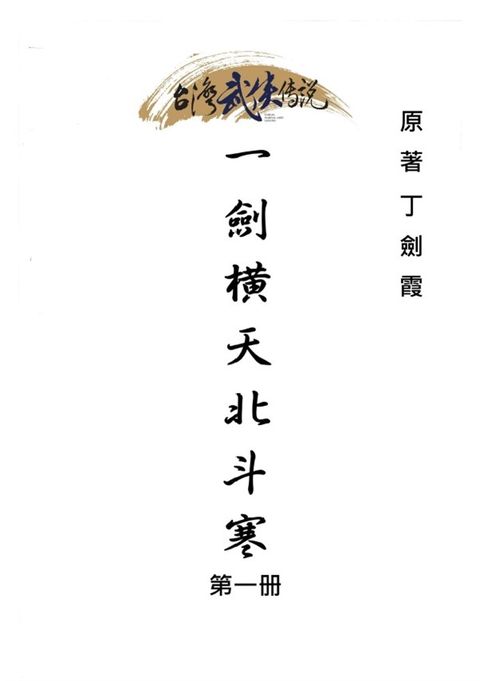 台灣武俠傳說
原著丁劍霞
一劍橫天北斗寒
第一册